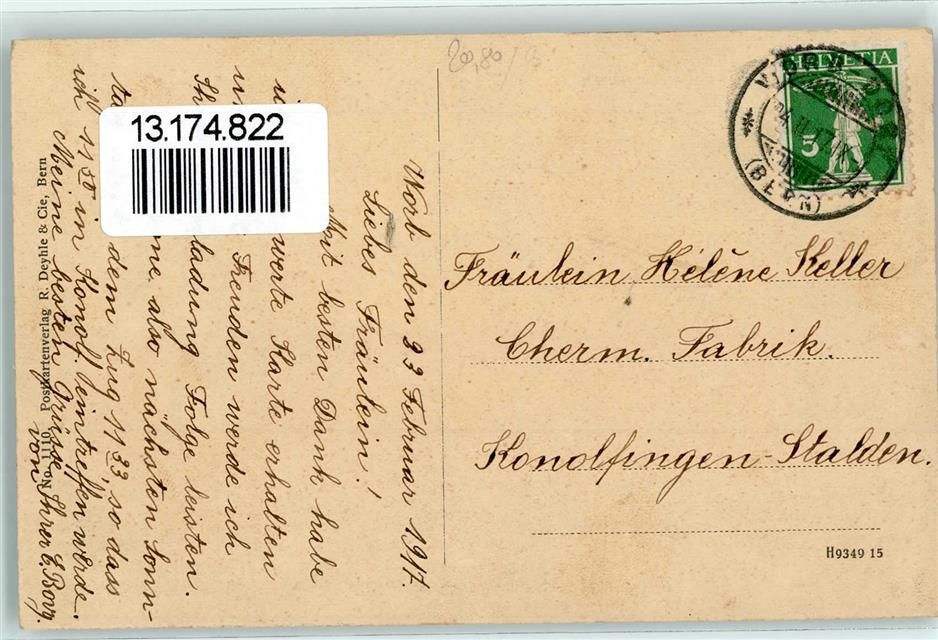 20,80/
HELVETIA
3
(BERN)
13.174.822
Worb den 23 Februar 1917.
Liebes Fräulein!
Mit besten Dank habe
werte Karte erhalten
Freuden werde ich
ladung Folge leisten.
also nächsten Sonn-
dem Zug 11 33, so dass
ich 11 50 in Konolf. eintreffen werde.
Meine besten Grüsse
von Ihrer E.
Fräulein Hélène Keller
Cherm. Fabrik.
Konolfingen-Stalden.
H9349 15
No. 1110 Postkartenverlag R. Deyhle & Cie, Bern